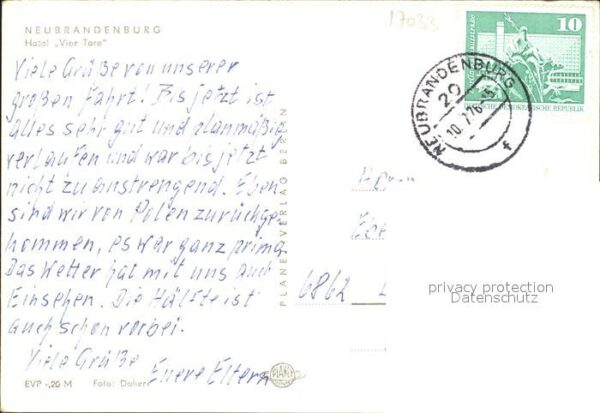 NEUBRANDENBURG
Hotel „Vier Tore"
Viele Grüße von unserer
großen Fahrt! Bis jetzt ist
alles sehr gut und planmäßig
verlaufen und war bis jetzt
nicht zu anstrengend. Eben
sind wir von Polen zurückge-
kommen, es war ganz prima.
Das Wetter hat mit uns auch
Einsehen. Die Hälfte ist
auch schon vorbei.
Viele Grüße
Euere Eltern
EVP -,20 M
PLANET-VERLAG BERLIN
PLANET
17033
10
DEUTSCHE DEMOKRATISCHE REPUBLIK
NEUBRANDENBURG
20
10.7.76
f
Herrn
6862
privacy protection
Datenschutz